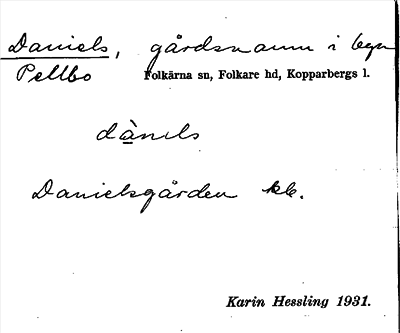 Daniels, gårdsnamn i byn
Pellbo Folkärna sn, Folkare hd, Kopparbergs l.
dànɩls
Danielsgården kb.
Karin Hessling 1931.